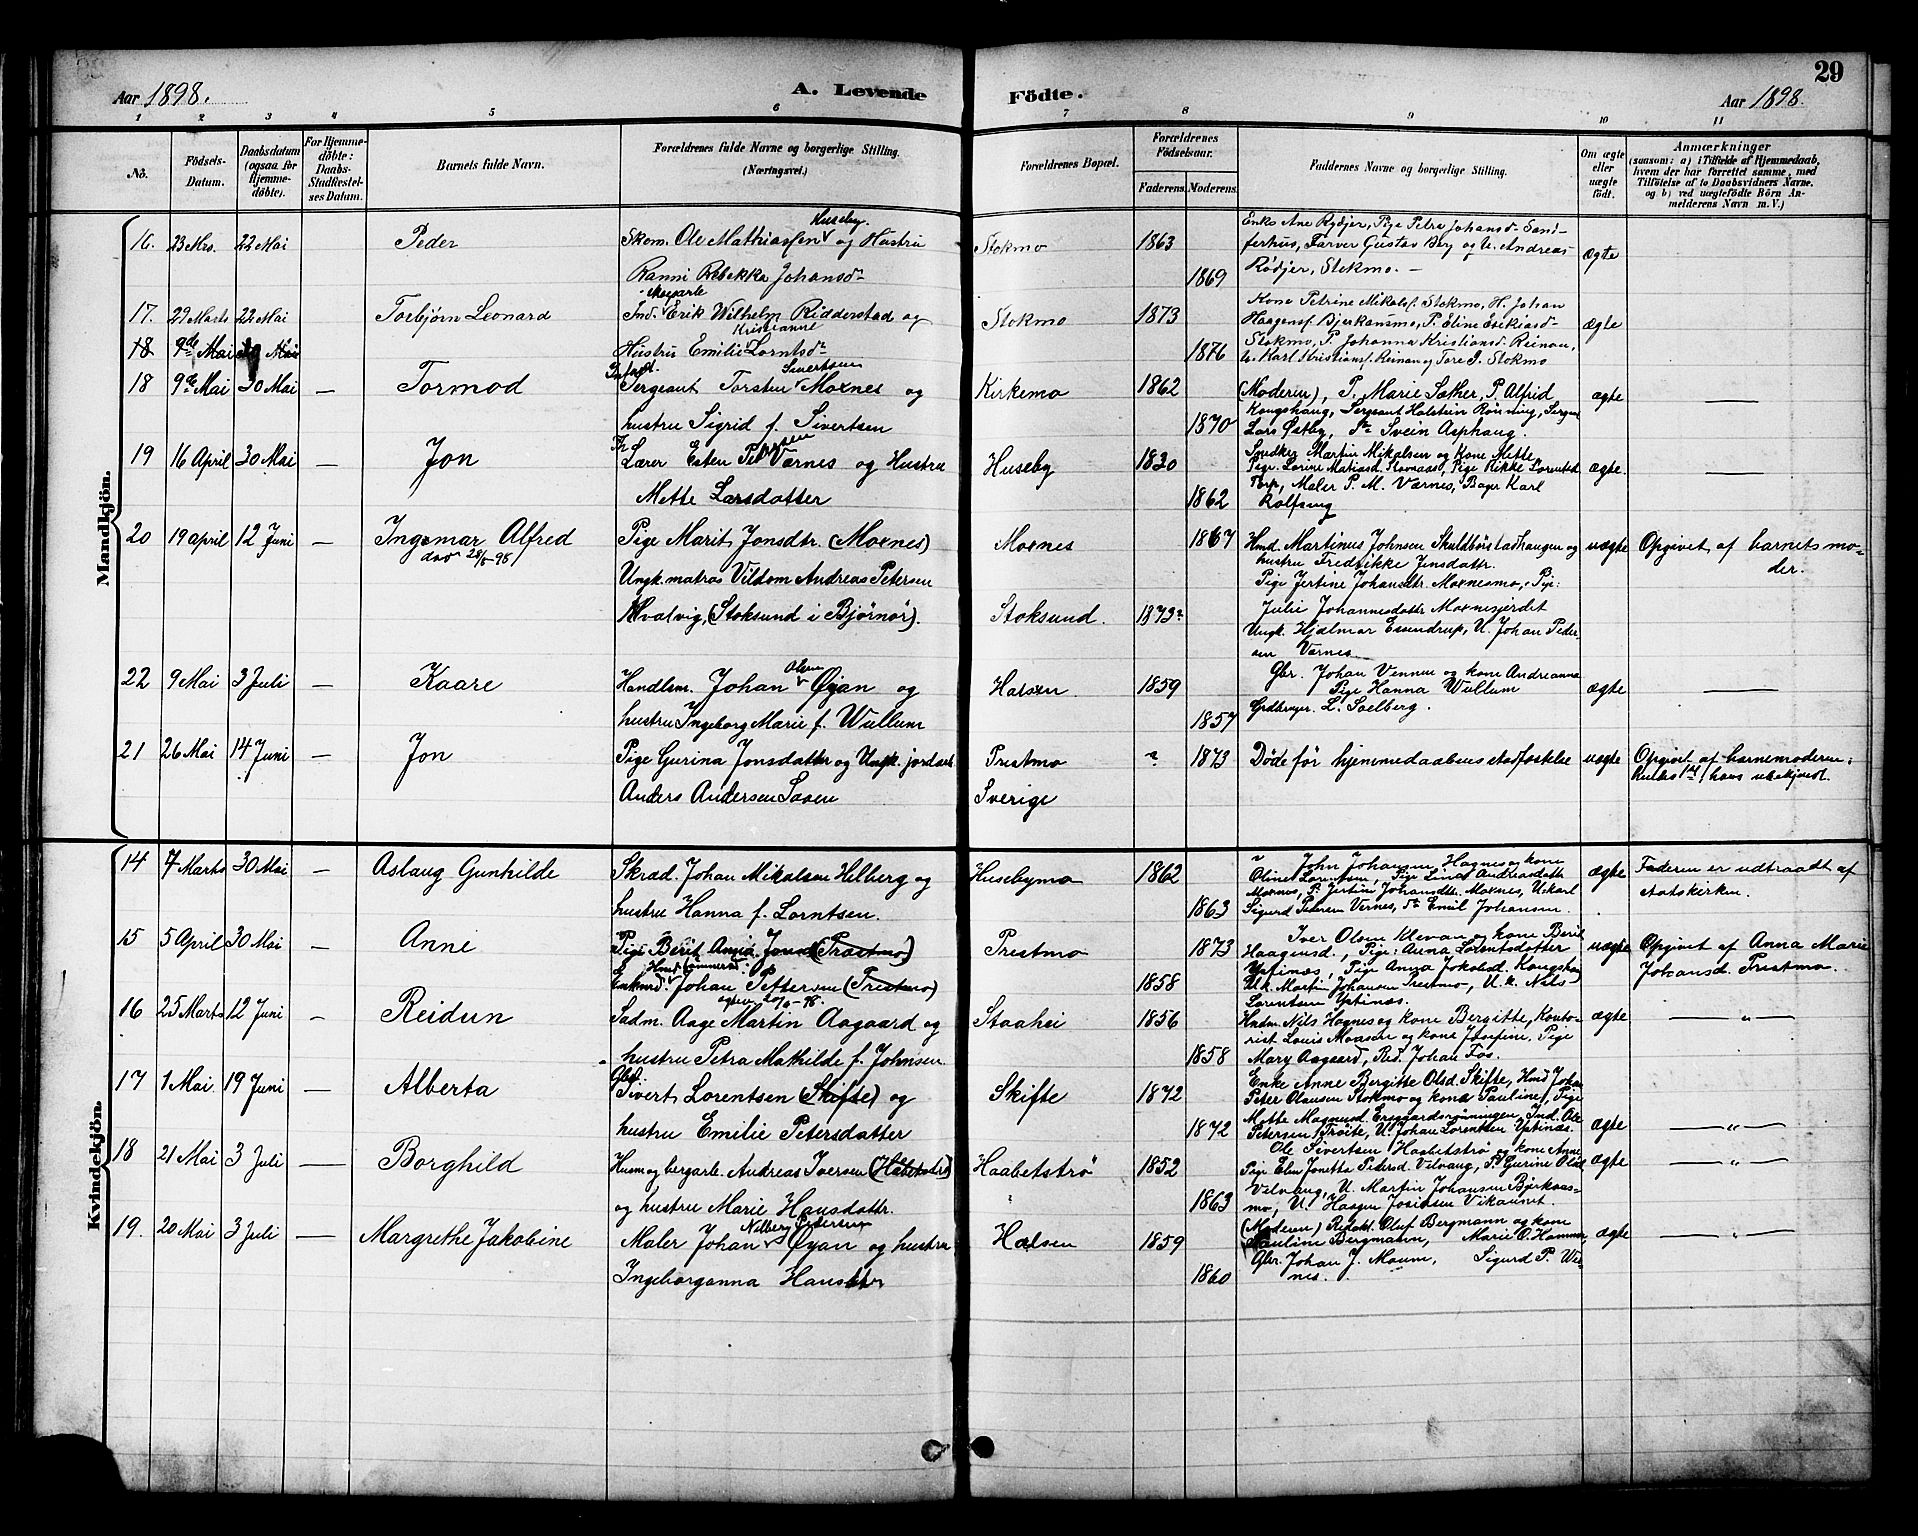 29
Aar 1898.
A. Levende
Födte.
Aar 1898.
1 2 3 4 5 6 7 8 9 10 11
No.
Födsels-Datum.
Daabsdatum (ogsaa for Hjemmedöbte).
For Hjemmedöbte: Daabs-Stadfæstelses Datum.
Barnets fulde Navn.
Forældrenes fulde Navne og borgerlige Stilling.
(Næringsvei.)
Forældrenes Bopæl.
Forældrenes Födselsaar.
Faderens. Moderens.
Faddernes Navne og borgerlige Stilling.
Om ægte eller uægte födt.
Anmærkninger
(saasom: a) i Tilfælde af Hjemmedaab,
hvem der har forrettet samme, med
Tilföielse af to Daabsvidners Navne,
og b) ved uægtefödte Börn An-
melderens Navn m. V.)
Mandkjön.
16. 23 Mrs. 22 Mai Peder
Skom. Ole Mathiassen Huseby og Hustru
Ranni Rebekka Johansdr
Stokmo 1863 1869
Enke Ane Rødjer, Pige Petra Johansd. Sand-
ferhus, Farver Gustav Berg og U. Andreas
Rödjer, Stokmo. –
ægte
17. 29 Marts 22 Mai Torbjørn Leonard
Ind. Erik Wilhelm Ridderstad og
Hustru Emilie Kristianne Lorntsdr
Stokmo 1873 1876
Kone Petrine Mikalsf. Stokmo, H. Johan
Haagensf. Bjerkansmo, P. Eline Esekiasd-
Stokmo, P. Johanna Kristiansd. Reinan,
U. Karl Kristiansf. Reinan og Tore J. Stokmo
ægte
18 9de Mai 30 Mai
18 9de Mai 30 Mai – Tormod
Sergeant Torsten Sivertsen Moxnes og
hustru Sigrid f. Sivertsen
Kirkemo 1862 1870
(Moderen), P. Marie Sæther, P. Alfrid
Kongshaug, Sergeant Holstein Rönning, Sergeant
Lars Østby, do Svein Asphaug.
ægte
19 16 April 30 Mai – Jon
Fr. Lærer Esten Pedersen Værnes og Hustru
Mette Larsdatter
Huseby 1830 1862
Snedker Martin Mikalsen og Kone Mette
Pige Lorine Matiasd. Stovsaas, Pige Rikke Lorentsd.
Torp, Maler P. M. Værnes, Bager Karl
Rolfseng
ægte.
20 19 april 12 Juni – Ingemar Alfred
død 28/8 98
Pige Marit Jonsdtr. (Moxnes)
Ungk. matros Vildom Andreas Petersen
Hvalvig, (Stoksund i Bjørnør).
Moxnes 1867
Stoksund. 1873?
Hmd. Martinus Johnsen Skuldbörstadhaugen og
hustru Fredrikke Jensdattr.
Pige Jertine Johansdtr. Moxnesmo, Pige
Julie Johannesdattr Moxnesjerdet
Ungk. Hjalmar Essendrup, U. Johan Peder-
sen Værnes.
uægte
Opgivet af barnets mo-
der.
22 9 Mai 3 Juli – Kaare
Handlsm. Johan Olsen Øyan og
hustru Ingeborg Marie f. Wullum
Halsen 1859 1857
Gbr. Johan Vennes og kone Andreanna
Pige Hanna Wullum
Grdbruger. L. Saelberg.
ægte
21 26 Mai 14 Juni – Jon
Pige Gurina Jonsdatter og Ungk. jordarb.
Anders Andersen Saxen
Prestmo ? 1873
Sverige
Döde för hjemmedaabens stadfæstelse
uægte
Opgivet af barnemoderen;
Kvindekjön.
14 7 Marts 30 Mai – Aslaug Gunhilde
Skræd. Johan Mikalsen Hilberg og
hustru Hanna f. Lorntsen.
Husebymo 1862 1863
John Johansen Hognes og kone
Oline Lorentsen, Pige Lina Andreasdatt
Moxnes, P. Jertine Johansdtr. Moxnes, U. karl
Sigurd Petersen Vernes, do Emil Johansen.
ægte
Faderen er udtraadt af
statskirken.
15 5 April 30 Mai Anne
Pige Berit Anna Jonsd (Prestmo)
Enkmd. Johan Pettersen (Prestmo)
Prestmo 1873 1858
Iver Olsen Klevan og kone Berit
Haagensd., Pige: Anna Lorentsdatter
Ystinæs, Pige Anna Jakobsd. Kongshau
U.k. Martin Johansen Prestmo, U.k. Nils
Lorentsen Ystinæs.
uægte
Opgivet af Anna Marie
Johansd. Prestmo.
16 25 Marts 12 Juni – Reidun
Sadm. Aage Martin Aagaard og
hustru Petra Mathilde f. Johnsen
Staahei 1856 1858
Hndm. Nils Hognes og kone Bergitte, Konto-
rist Louis Moxsen og kone Josefine, Pige
Mary Aagaard, Red. Johan Fos.
ægte – " –
17 1 Mai. 19 Juni – Alberta
Gbr. Sivert Lorentsen (Skifte) og
hustru Emilie Petersdatter
Skifte 1872 1872
Enke Anne Bergitte Olsd. Skifte, Hmd Johan
Peter Olausen Stokmo og kone Pauline, Pige
Mette Magnusd. Ersgaardsrønningen, Ind. Ole
Petersen Trøite, U. Johan Lorentsen Ystinæs
ægte – " –
18 21 Mai 3 Juli – Borghild
Husm og bergarb. Andreas Iversen (Haabetstrø)
og hustru Marie Hansdattr.
Haabetströ 1852 1863
Ole Sivertsen Haabetströ og kone Anne
Pige Elen Jonetta Pedersd. Vilvang, P. Gurine Olsd
Vilvang, U. Martin Johansen Bjerkaas-
mo, U. Haagen Josiassen Vikaunet.
ægte – " –
19. 20 Mai 3 Juli – Margrethe Jakobine
Maler Johan Nilberg Pedersen Øyan og hustru
Ingeborganna Hansdtr
Halsen 1859 1860
(Moderen) Redakt. Oluf Bergmann og kone
Pauline Bergmann, Marie O. Hammer,
Gbr. Johan J. Moum, Sigurd P. Ver-
nes.
ægte – " –